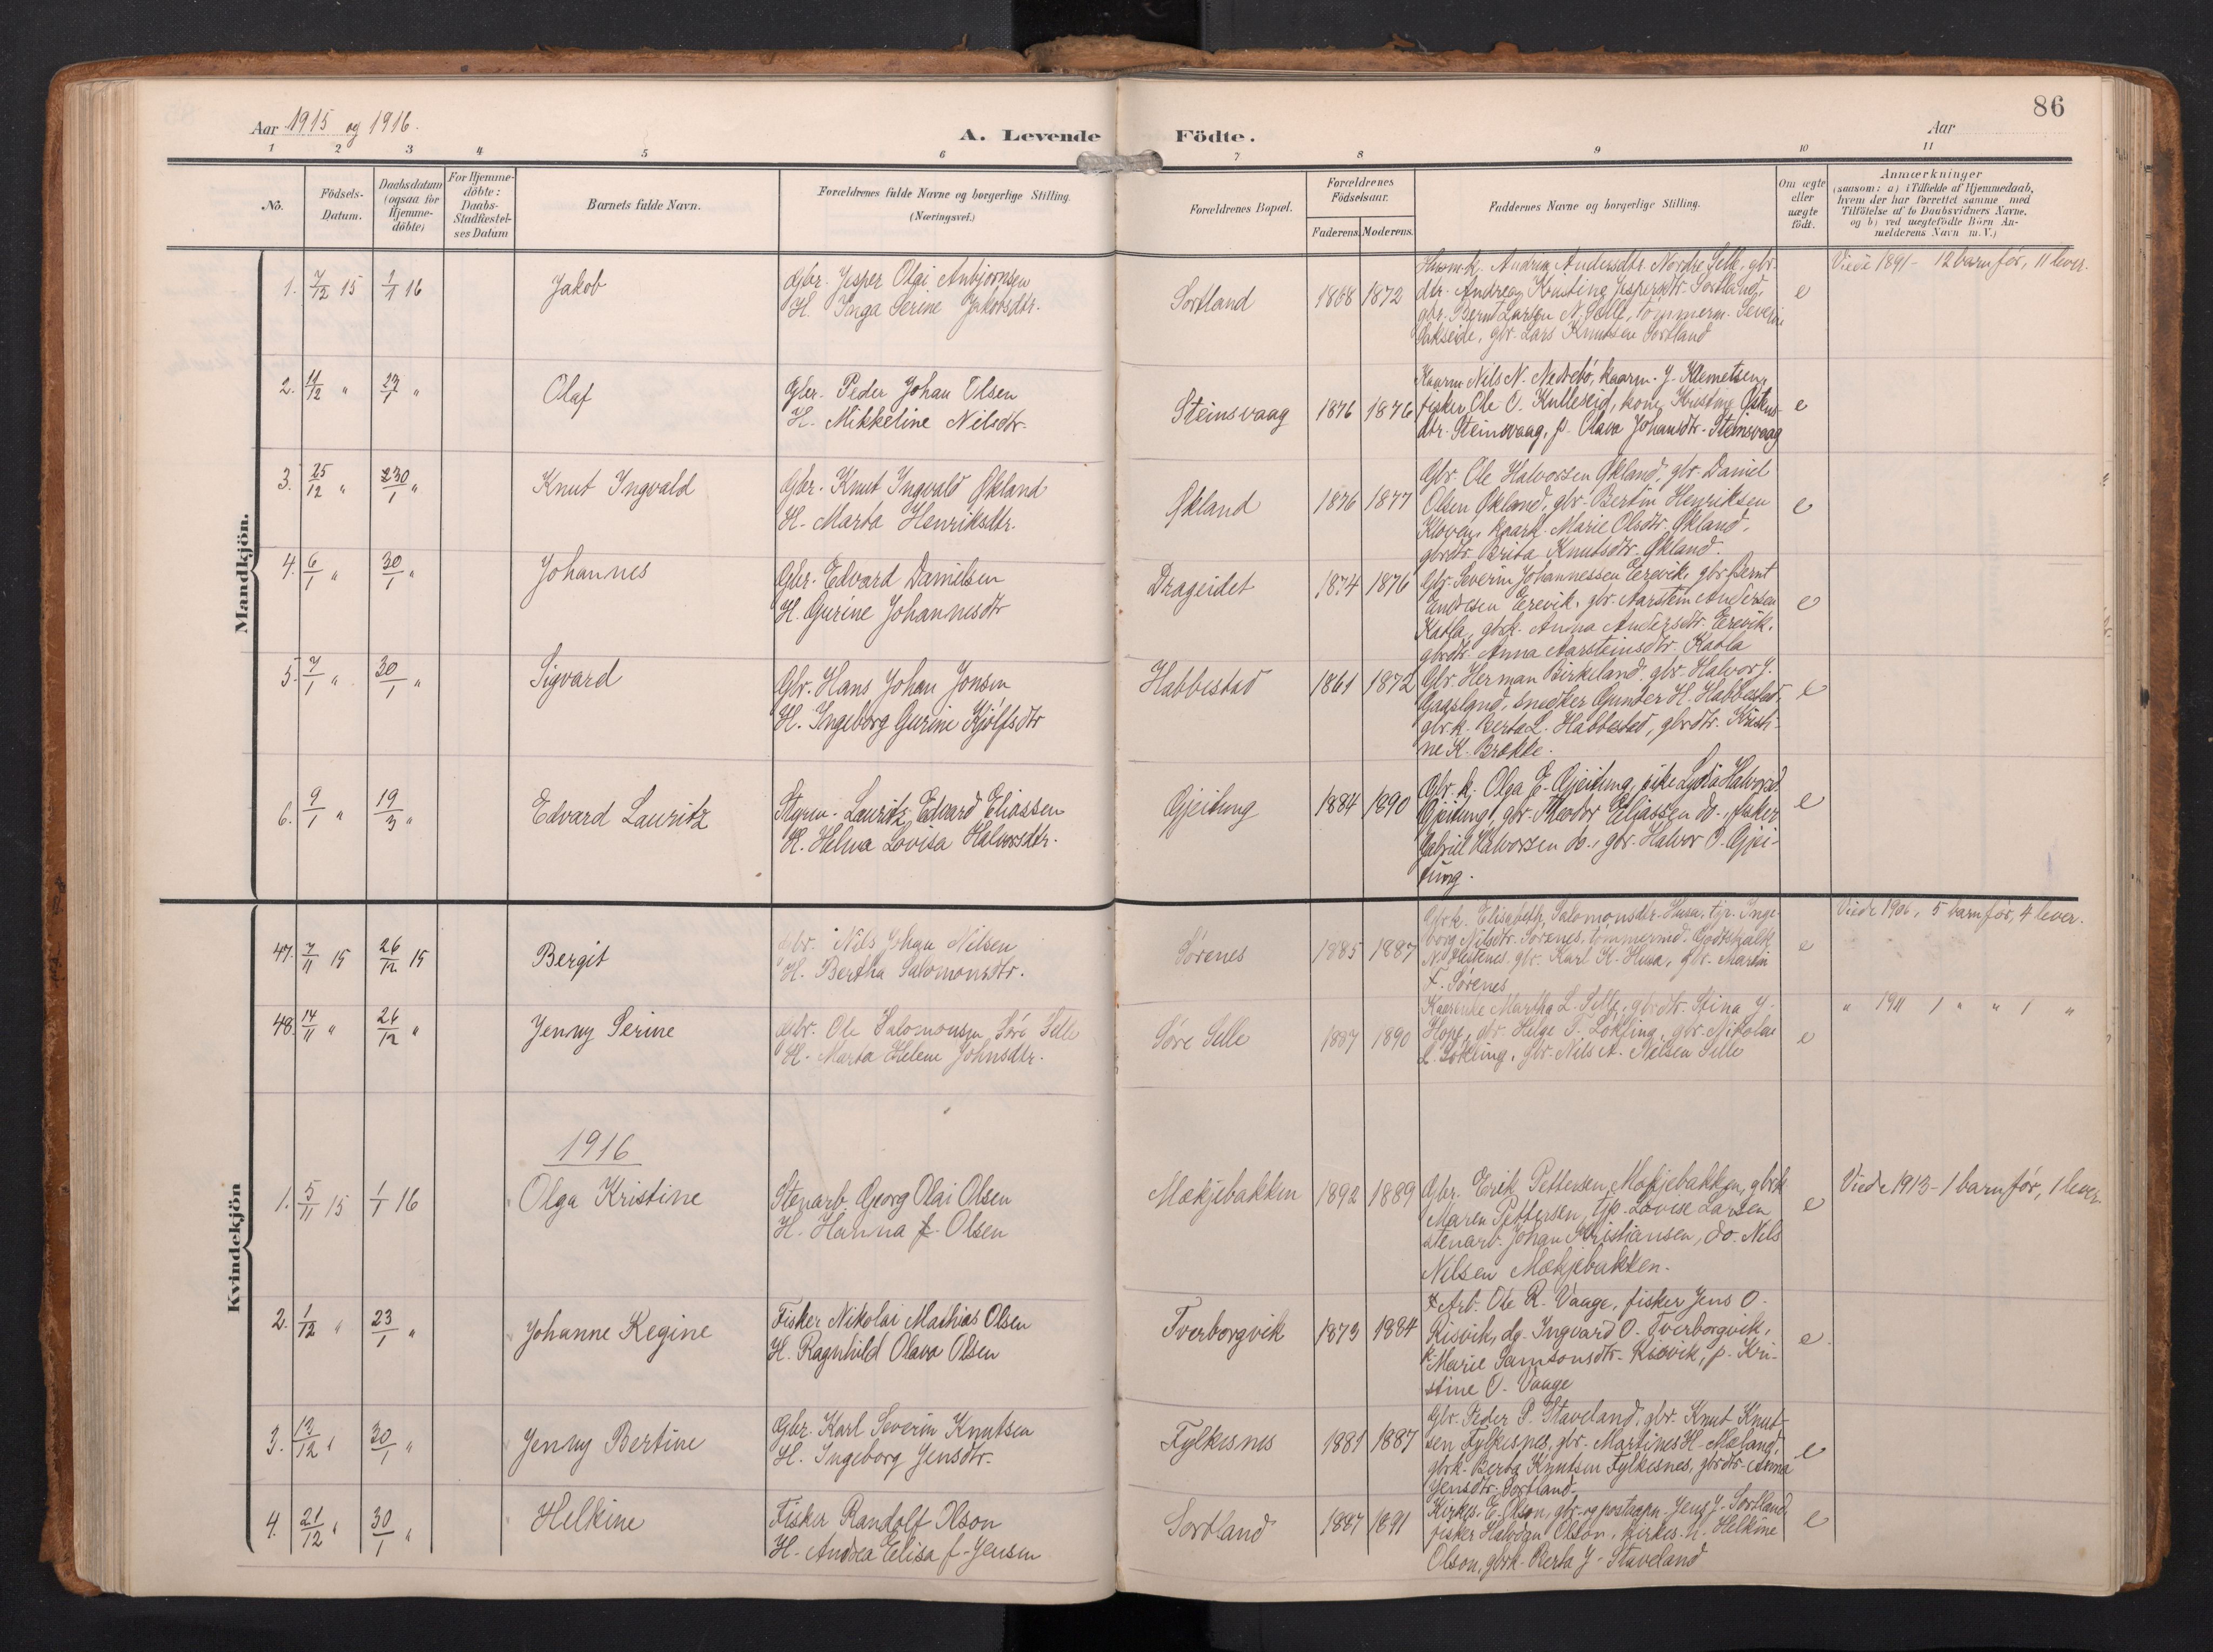 Aar 1915 og 1916.
A. Levende Födte.
Aar
86
1 2 3 4 5 6 7 8 9 10 11
No.
Födsels-
Datum.
Daabsdatum
(ogsaa for
Hjemme-
döbte)
For Hjemme-
döbte:
Daabs-
Stadfæstel-
ses Datum
Barnets fulde Navn.
Forældrenes fulde Navne og borgerlige Stilling.
(Næringsvei.)
Forældrenes Bopæl.
Forældrenes
Födselsaar.
Faderens. Moderens.
Faddernes Navne og borgerlige Stilling.
Om ægte
eller
uægte
födt.
Anmærkninger
(saasom: a) i Tilfælde af Hjemmedaab,
hvem der har forrettet samme med
Tilföielse af to Daabsvidners Navne,
og b) ved uægtefödte Börn An-
melderens Navn m. V.)
Mandkjön.
1. 7/12 15 2/1 16 Jakob
Gbr. Jesper Olai Anbjørnsen
H. Inga Serine Jakobsdtr.
Sortland 1868 1872
Husm.k. Andrea Andersdtr. Nordre Selle, gbr.
dtr. Andrea Kristine Jespersdtr. Sortland,
gbr. Bernt Larsen N. Selle, tømmerm. Severin
gbr. Lars Knutsen Sortland
e
Viede 1891 - 12 barn før, 11 lever.
2. 11/12 " 23/1 " Olaf
Gbr. Peder Johan Olsen
H. Mikkeline Nilsdtr.
Steinsvaag 1876 1876
Kaarm. Nils N. Nedrebø, kaarm. J. Klemetsen,
fisker Ole O. Kulleseid, kone Kristine
dtr. Steinsvaag, p. Olava Johansdtr. Steinsvaag
e
3. 25/12 " 30/1 " Knut Ingvald
Gbr. Knut Ingvald Økland
H. Marta Henriksdtr.
Økland 1876 1877
Gbr. Ole Halvorsen Økland, gbr. Daniel
Olsen Økland, gbr. Bertin Henriksen
Kloven, kaark. Marie Olsdtr. Økland,
gbrdtr. Brita Knutsdtr. Økland.
e
4. 6/1 " 30/1 " Johannes
Gbr. Edvard Danielsen
H. Gurine Johannesdtr
Drageidet 1874 1876
Gbr. Severin Johannessen Erevik, gbr. Bernt
Endresen Erevik, gbr. Aarstein Andersen
Katla, gbrk. Anna Andersdtr. Erevik,
gbrdtr. Anna Aarsteinsdtr. Katla
e
5. 7/1 " 30/1 " Sigvard
Gbr. Hans Johan Jonsen
H. Ingeborg Gurine Kjølfsdtr
Habbestad 1861 1872
Gbr. Herman Birkeland, gbr. Halvor J.
Gaasland, snedker Gunder H. Habbestad,
gbr.k. Berta L. Habbestad, gbrdtr. Kristi-
ne K. Brække.
e
6. 9/1 " 19/3 " Edvard Lauritz
Styrm. Lauritz Edvard Eliassen
H. Helma Lovisa Halvorsdtr.
Gjeitung 1884 1890
Gbr. k. Olga E. Gjeitung, pike Lydia Halvorsd.
Gjeitung, gbr. Theodor Eliassen do., fisker
Gabriel Halvorsen do., gbr. Halvor O. Gjei-
tung.
e
Kvindekjön
47. 7/11 15 26/12 15 Bergit
Gbr. Nils Johan Nilsen
H. Bertha Salomonsdtr.
Sørenes 1885 1887
Gbrk. Elisabeth Salomonsdtr. Husa, tjp. Inge-
borg Nilsdtr. Sørenes, tømmermd. Godtskalk
N. gbr. Karl K. Husa, gbr. Martin
F. Sørenes
e
Viede 1906, 5 barn før, 4 lever.
48. 14/11 " 26/12 " Jenny Serine
Gbr. Ole Salomonsen Søre Selle
H. Marta Helene Johnsdtr.
Søre Selle 1887 1890
Kaarenke Martha L. Selle, gbrdtr. Stina J.
Hope, gbr. Helge S. Løkling, gbr. Nikolai
L. Løkling, gbr. Nils A. Nilsen Selle
e
" 1911 1 " " 1 "
1916
1. 5/11 15 1/1 16 Olga Kristine
Stenarb. Georg Olai Olsen
H. Hanna f. Olsen
Mækjebakken 1892 1889
Gbr. Erik Pettersen Mækjebakken, gbrk
Maren Pettersen, tjp. Lovise Larsen
stenarb. Johan Kristiansen, do. Nils
Nilsen Mækjebakken.
e
Viede 1913 - 1 barn før, 1 lever.
2. 1/12 " 23/1 " Johanne Regine
Fisker Nikolai Mathias Olsen
H. Ragnhild Olava Olsen
Tverborgvik 1873 1884
Arb. Ole R. Vaage, fisker Jens O.
Risvik, dg. Ingvard O. Tverborgvik,
k. Marie Samsonsdtr. Risvik, p. Kri-
stine O. Vaage
e.
3. 13/12 " 30/1 " Jenny Bertine
Gbr. Karl Severin Knutsen
H. Ingeborg Jensdtr.
Fylkesnes 1881 1887
Gbr. Peder P. Staveland, gbr. Knut Knut-
sen Fylkesnes, gbr. Martines H. Mæland,
gbrk. Berta Knutsen Fylkesnes, gbrdtr. Anna
Jensdtr. Sortland.
e
4. 21/12 " 30/1 " Helkine
Fisker Randolf Olson
H. Andrea Elisa f. Jensen
Sortland 1887 1891
Kirkes. E. Olson, gbr. og postaapn. Jens J. Sortland,
fisker Halvdan Olson, kirkes. h. Helkine
Olson, gbrk. Berta J. Staveland
e